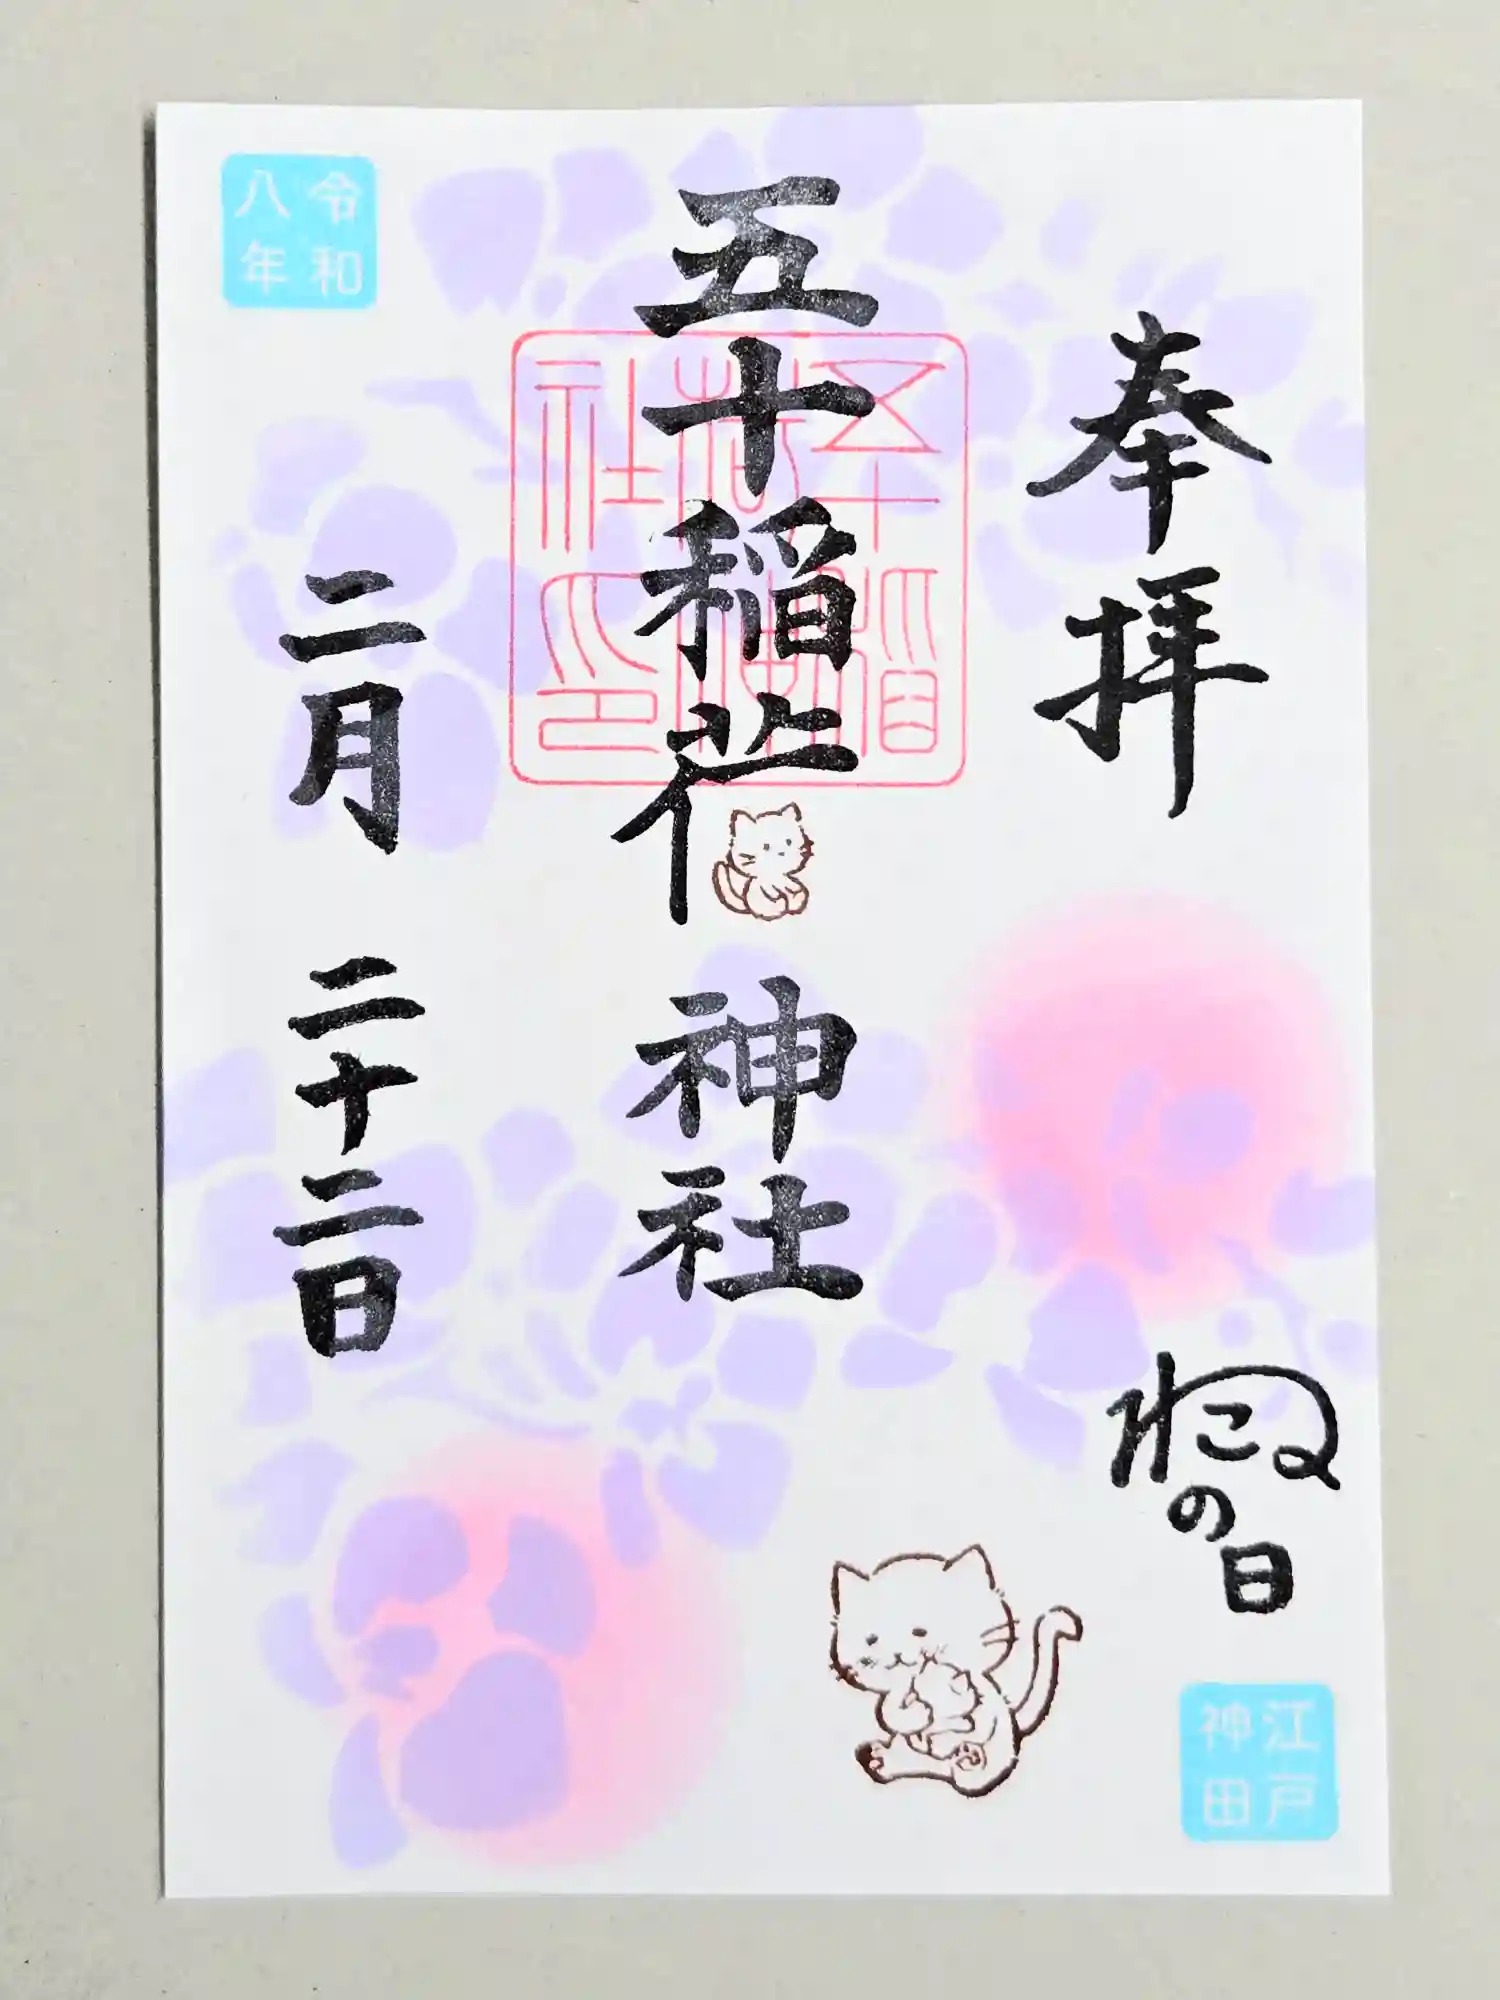 奉拝
ねこの日
江戸
神田
五十稲荷神社
五十稲荷神社印
令和
八年
二月二十二日